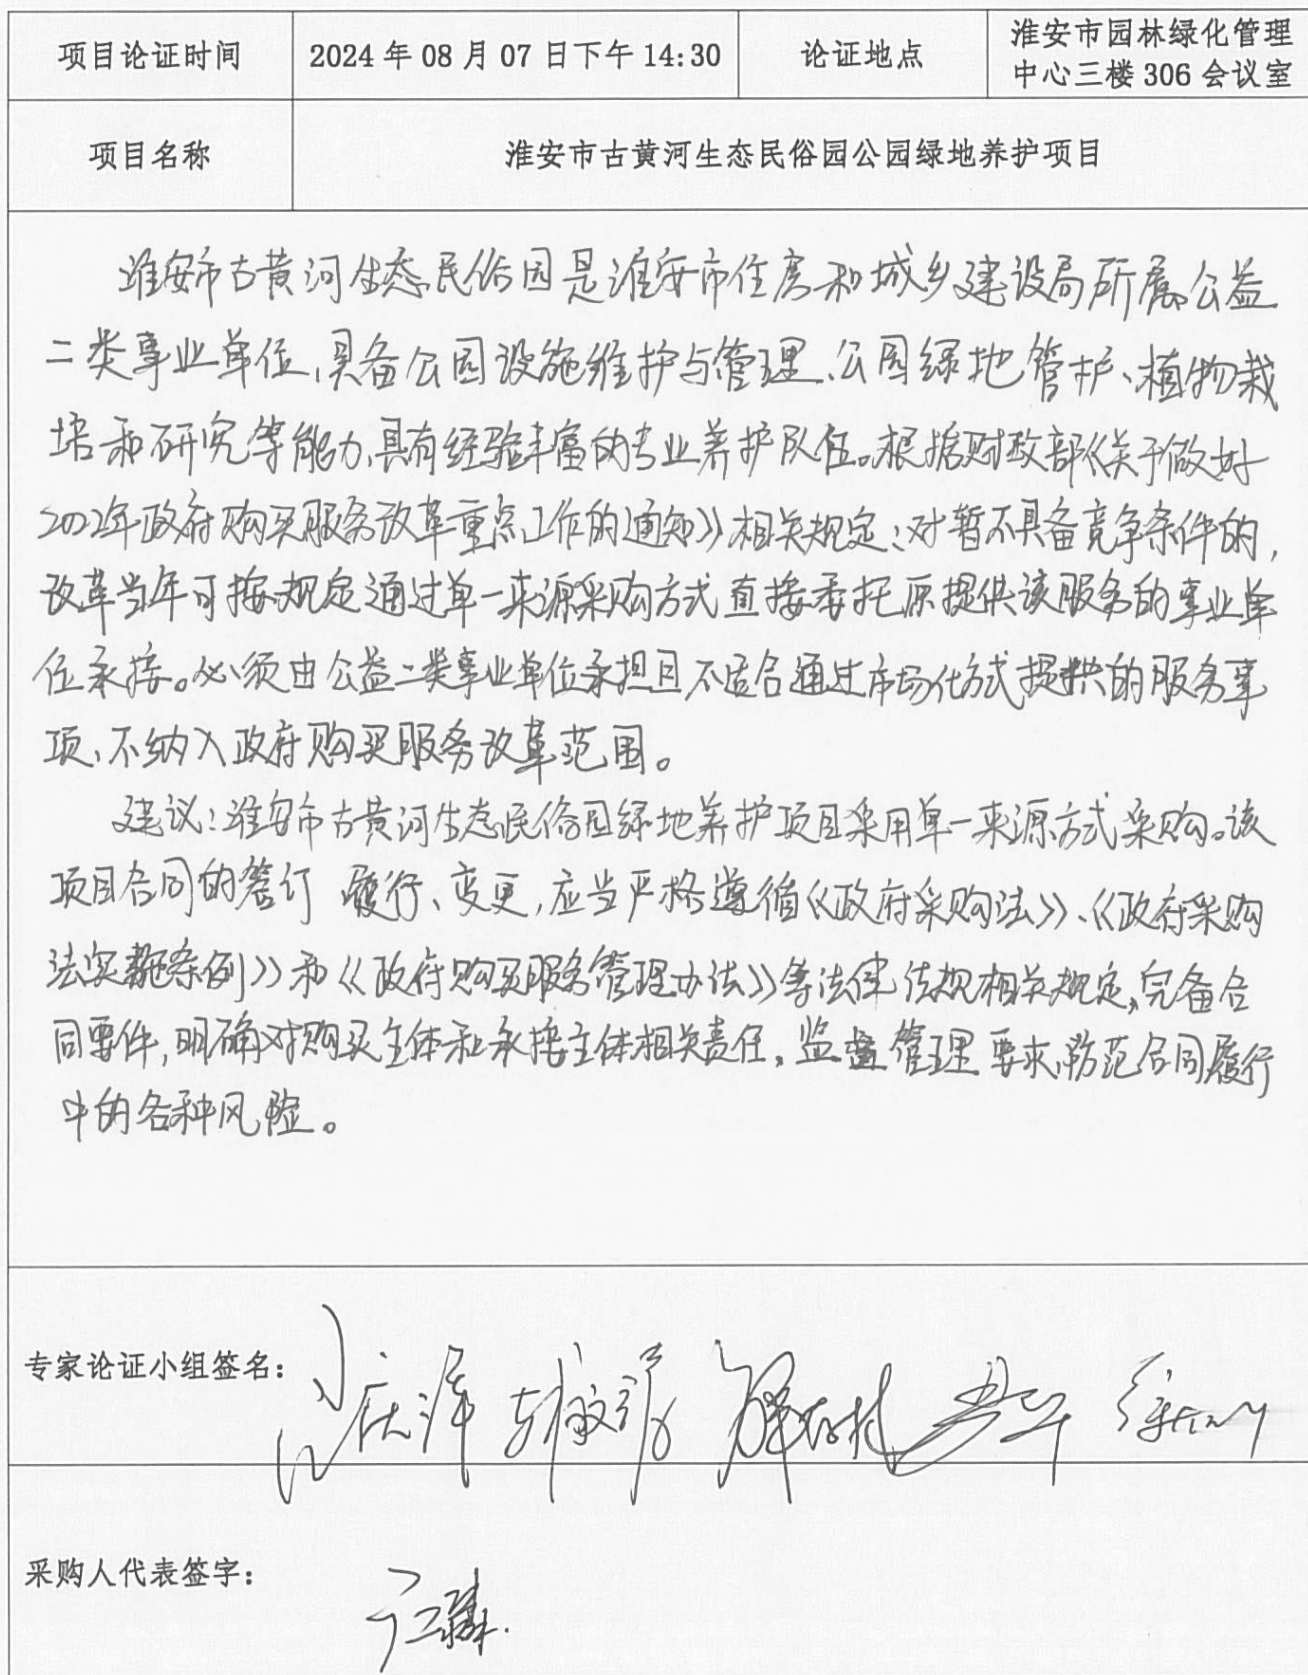 项目论证时间
2024年08月07日下午14:30
论证地点
淮安市园林绿化管理
中心三楼306会议室
项目名称
淮安市古黄河生态民俗园公园绿地养护项目
淮安市古黄河生态民俗园是淮安市住房和城乡建设局所属公益
二类事业单位,具备公园设施维护与管理、公园绿地管护、植物栽
培和研究等能力,具有经验丰富的专业养护队伍。根据财政部《关于做好
2022年政府购买服务改革重点工作的通知》相关规定:对暂不具备竞争条件的,
改革当年可按规定通过单一来源采购方式直接委托原提供该服务的事业单
位承接。必须由公益二类事业单位承担且不适合通过市场化方式提供的服务事
项、不纳入政府购买服务改革范围。
建议:淮安市古黄河生态民俗园绿地养护项目采用单一来源方式采购。该
项目合同的签订 履行、变更,应当严格遵循《政府采购法》、《政府采购
法实施条例》和《政府购买服务管理办法》等法律法规相关规定,完备合
同要件,明确对购买主体和承接主体相关责任,监督管理要求,防范合同履行
中的各种风险。
专家论证小组签名:
采购人代表签字: